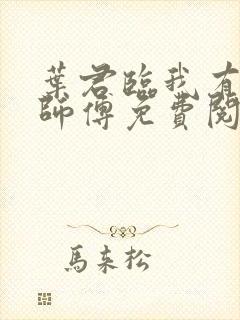 葉君臨我有
師傅免費閱
馬來松